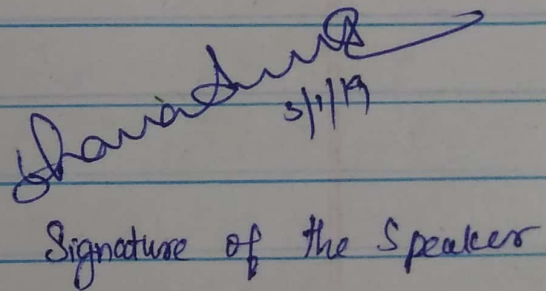 3/1/19
Signature of the Speaker